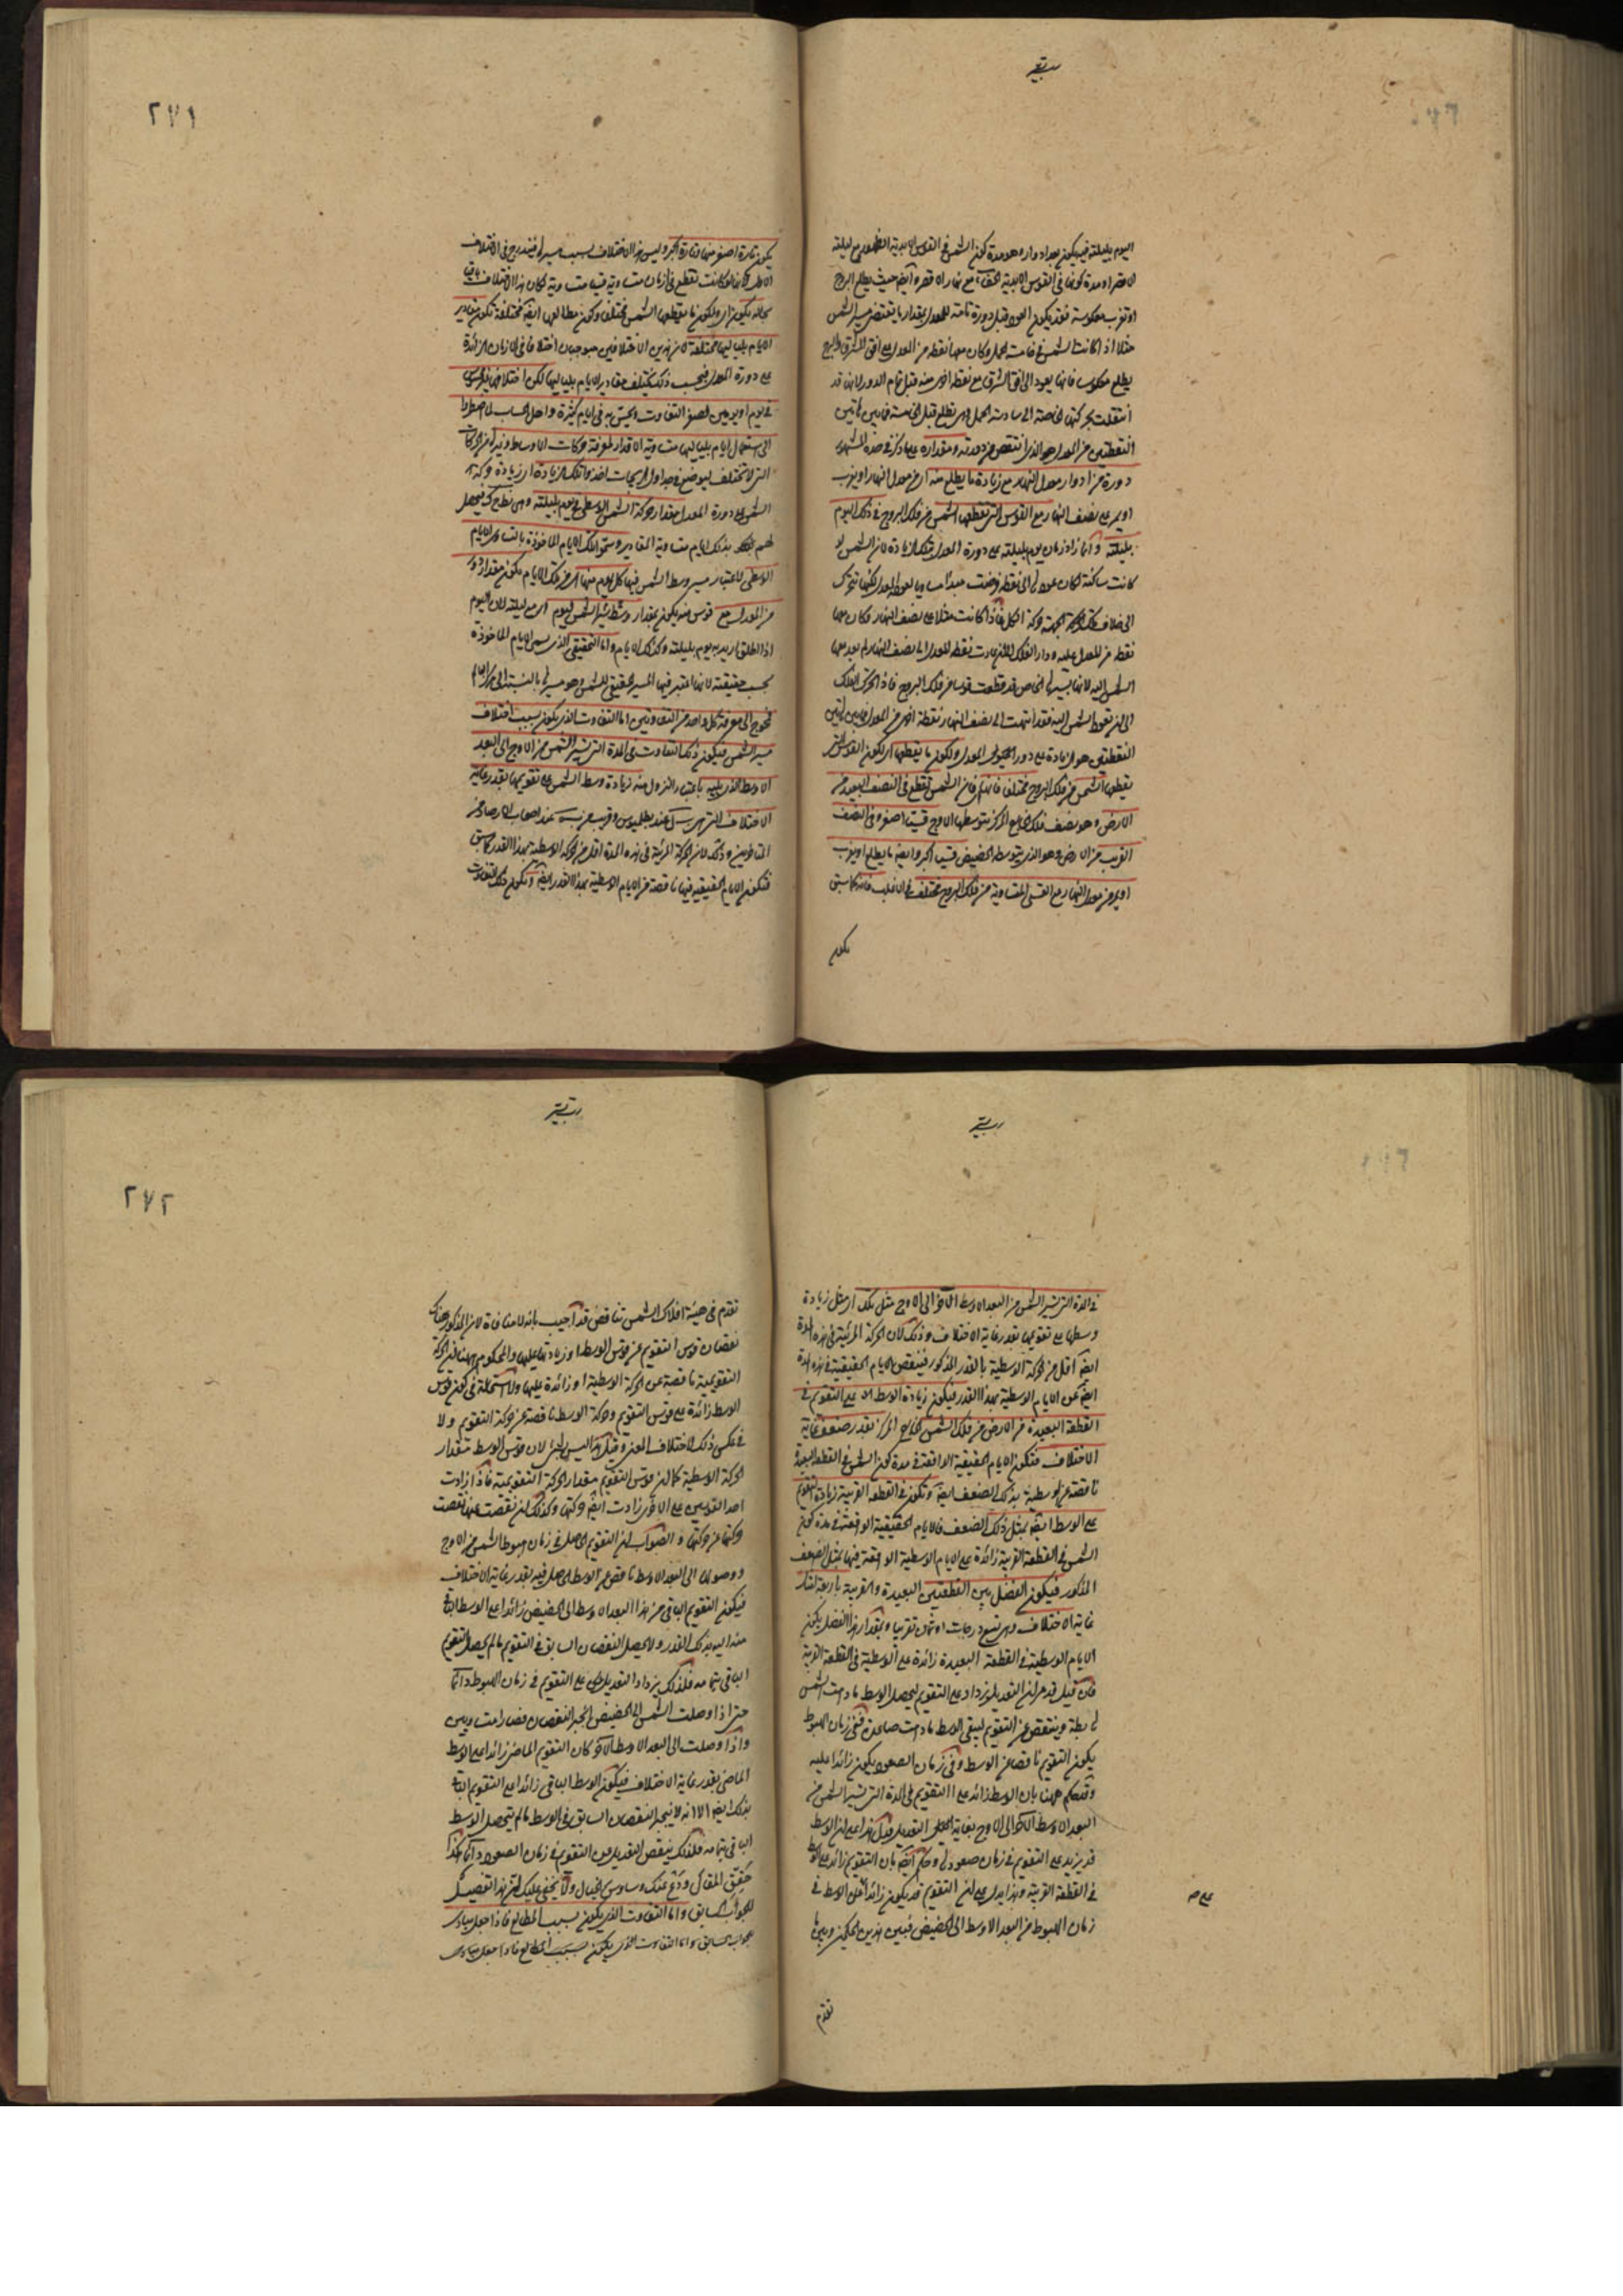 اليوم بليلته فيكون بعد ادوار وهو مدة كون الشمس في القوس الابدية الظهور مع ليلته
الاقصر او مدة كونها في القوس الابدية الخفاء مع نهار الاقصر وايضا حيث يطلع البروج
او تغرب معكوسة فقد يكون العود قبل دورة تامة للمعدل بمقدار ما يقتضيه مسير الشمس
مثلا اذا كانت الشمس في خامسة الحمل وكان معها نقطة من المعدل على افق المشرق والبروج
يطلع معكوسا فانها يعود الى افق الشرق مع نقطة اخرى منه قبل تمام الدور لانها قد
انتقلت بحركتها الخاصة الى سادسة الحمل وهي تطلع قبل الخامسة فما بين هاتين
النقطتين من المعدل هو الذي انتقص من دورته ومقداره على ما ذكر في هذه المشهورة
دورة من ادوار معدل النهار مع زيادة ما يطلع منه اي من معدل النهار او يغرب
او يمر على نصف النهار مع القوس التي تقطعها الشمس من فلك البروج في ذلك اليوم
بليلته وانما زاد زمان يوم بليلته على دورة المعدل بتلك الزيادة لان الشمس لو
كانت ساكنة لكان عودها الى نقطة فرضت مبدأ مساويا لعود المعدل لكنها تتحرك
الى خلاف جهة حركة الكل فاذا كانت مثلا على نصف النهار وكان معها
نقطة من المعدل عليه ودار الفلك الى ان عادت نقطة المعدل الى نصف النهار لم يعد معها
الشمس اليه لانها بسيرها الخاص قد قطعت قوسا من فلك البروج فاذا تحرك الفلك
الى ان تعود الشمس اليه فقد انتهت الى نصف النهار نقطة اخرى من المعدل فما بين هاتين
النقطتين هو الزيادة على دور المعدل ولكون ما يقطعها اي لكون القوس التي
يقطعها الشمس من فلك البروج مختلفا فان الشمس تقطع في النصف البعيد من
الارض وهو نصف فلك الخارج المركز يتوسطها الاوج قسيا اصغر وفي النصف
القريب من الارض وهو الذي يتوسطه الحضيض قسيا اكبر وايضا ما يطلع او يغرب
او يمر من معدل النهار مع القسي المتساوية من فلك البروج مختلف في الاغلب فانه كما سبق
يكون
٢٧١
يكون تارة اصغر منها وتارة اكبر وليس هذا الاختلاف بسبب مسيرها فيندرج في الاختلاف
الاول لانها لو كانت تقطع في ازمان متساوية قسيا متساوية لكان هذا الاختلاف باقيا
بحاله يكون اي ولكون ما يقطعها الشمس مختلفا وكون مطالعها ايضا مختلفة تكون مقادير
الايام بلياليها مختلفة لان هذين الاختلافين يوجبان اختلافا في الزمان الزائدة
على دورة المعدل فبحسب ذلك يختلف مقادير الايام بلياليها لكن اختلافها غير محسوس
في يوم او يومين لصغر التفاوت ويحس به في ايام كثيرة واهل الحساب لما اضطروا
الى استعمال ايام بلياليها متساوية الاقدار لمعرفة حركات الاوساط وغيرها من الحركات
التي لا تختلف ليوضع في جداول الزيجات اخذوا تلك الزيادة اي زيادة حركة
الشمس على دورة المعدل مقدار حركة الشمس الاوسطى في يوم بليلته وهي نط ح ك فيحصل
لهم بذلك ايام متساوية المقادير وسموا تلك الايام الماخوذة بالتساوي الايام
الوسطى لاعتبار مسير وسط الشمس فيها كل يوم منها اي من تلك الايام يكون مقدار دورة
من المعدل مع قوس منه يكون بمقدار وسط سير الشمس ليوم اي مع ليلته لان اليوم
اذا اطلق اريد به يوم بليلته وكذلك الايام واما الحقيقي الذي يسمى الايام الماخوذة
بحسب حقيقته لانها اعتبر فيها المسير الحقيقي للشمس وهو مسيرها بالنسبة الى مركز العالم
فنحتاج الى معرفة كل واحد من التفاوتين اما التفاوت الذي يكون بسبب اختلاف
مسير الشمس فيكون ذلك التفاوت في المدة التي تسير الشمس من الاوج الى البعد
الاوسط الذي يليه باعتبار النزول منه زيادة وسط الشمس على تقويمها بقدر غاية
الاختلاف التي هي عند بطلميوس وقريب من عند اصحاب الارصاد من
المتاخرين وذلك لان الحركة المرئية في هذه المدة اقل من الحركة الوسطية بهذا القدر كما سبق
فتكون الايام الحقيقية فيها ناقصة من الايام الوسطية بهذا القدر ايضا ويكون ذلك التفاوت
في المدة التي تسير الشمس من البعد الاوسط الآخر الى الاوج مثل تلك اي مثل زيادة
وسطها على تقويمها بقدر غاية الاختلاف وذلك لان الحركة المرئية في هذه المدة
ايضا اقل من الحركة الوسطية بالقدر المذكور فينقص الايام الحقيقية في هذه المدة
ايضا عن الايام الوسطية بهذا القدر فيكون زيادة الوسط على التقويم في
القطعة البعيدة من الارض من فلك الشمس الخارج المركز بقدر ضعف غاية
الاختلاف فتكون الايام الحقيقية الواقعة في مدة كون الشمس في القطعة البعيدة
ناقصة عن الوسطية بذلك الضعف ايضا وتكون في القطعة القريبة زيادة التقويم
على الوسط ايضا بمثل ذلك الضعف فالايام الحقيقية الواقعة في مدة كون
الشمس في القطعة القريبة زائدة على الايام الوسطية الواقعة فيها بمثل الضعف
المذكور فيكون الفضل بين القطعتين البعيدة والقريبة باربعة امثال
غاية الاختلاف وهي تسع درجات او ثمان تقريبا وبمقدار هذا الفضل يكون
الايام الوسطية في القطعة البعيدة زائدة على الوسطية في القطعة القريبة
فان قيل قد مر ان التعديل يزداد على التقويم ليحصل الوسط ما دامت الشمس
هابطة وينتقص عن التقويم ليبقى الوسط ما دامت صاعدة ففي زمان الهبوط
يكون التقويم ناقصا عن الوسط وفي زمان الصعود يكون زائدا عليه
وقد حكم ههنا بان الوسط زائد على التقويم في المدة التي تسير الشمس من
البعد الاوسط الآخر الى الاوج بغاية التعديل فدل هذا على ان الوسط
قد يزيد على التقويم في زمان صعودها وحكم ايضا بان التقويم زائد على الوسط
في القطعة القريبة وهذا يدل على ان التقويم قد يكون زائدا على الوسط في
زمان الهبوط من البعد الاوسط الى الحضيض فبين هذين الحكمين وبين ما
على صح
تقدم
٢٧٢
تقدم في هيئة افلاك الشمس تناقض قد اجيب بانه لا منافاة لان المذكور هناك
نقصان قوس التقويم عن قوس الوسط او زيادتها عليها والمحكوم ههنا ان الحركة
التقويمية ناقصة عن الحركة الوسطية او زائدة عليها ولا استحالة في كون قوس
الوسط زائدة على قوس التقويم وحركة الوسط ناقصة عن حركة التقويم ولا
في عكس ذلك لاختلاف المعنى وقيل هذا ليس بشئ لان قوس الوسط مقدار
الحركة الوسطية كما ان قوس التقويم مقدار الحركة التقويمية فاذا ازادت
احد القوسين على الاخرى زادت ايضا حركتها وكذلك ان نقصت عنها نقصت
حركتها عن حركتها والصواب ان التقويم الحاصل في زمان هبوط الشمس من الاوج
ووصولها الى البعد الاوسط ناقص عن الوسط الحاصل فيه بقدر غاية الاختلاف
فيكون التقويم الباقي من هذا البعد الاوسط الى الحضيض زائدا على الوسط الباقي
منه اليه بذلك القدر ولا يحصل النقصان السابق في التقويم ما لم يحصل التقويم
الباقي بتمامه فلذلك يزداد التعديل على التقويم في زمان الهبوط دائما
حتى اذا وصلت الشمس الى الحضيض انجبر النقصان فصارا متساويين
واذا وصلت الى البعد الاوسط الآخر كان التقويم الماضي زائدا على الوسط
الماضي بقدر غاية الاختلاف فيكون الوسط الباقي زائدا على التقويم الباقي
بذلك ايضا الا انه لا ينجبر النقصان السابق في الوسط ما لم يتحصل الوسط
الباقي بتمامه فلذلك ينقص التعديل من التقويم في زمان الصعود دائما هكذا
حقق المقال ودع عنك وساوس الخيال ولا يخفى عليك ان هذا تفصيل
للجواب السابق واما التفاوت الذي يكون بسبب المطالع فاذا جعل مبادى
للجواب السابق واما التفاوت الذي يكون بسبب المطالع فاذا جعل مبادى